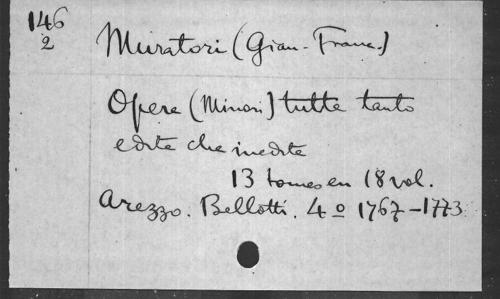 146
2
Muratori (Gian-Franc.)
Opere (Minori) tutte tanto
edite che inedite
13 tomes en 18 vol.
Arezzo. Bellotti. 4º 1767-1773